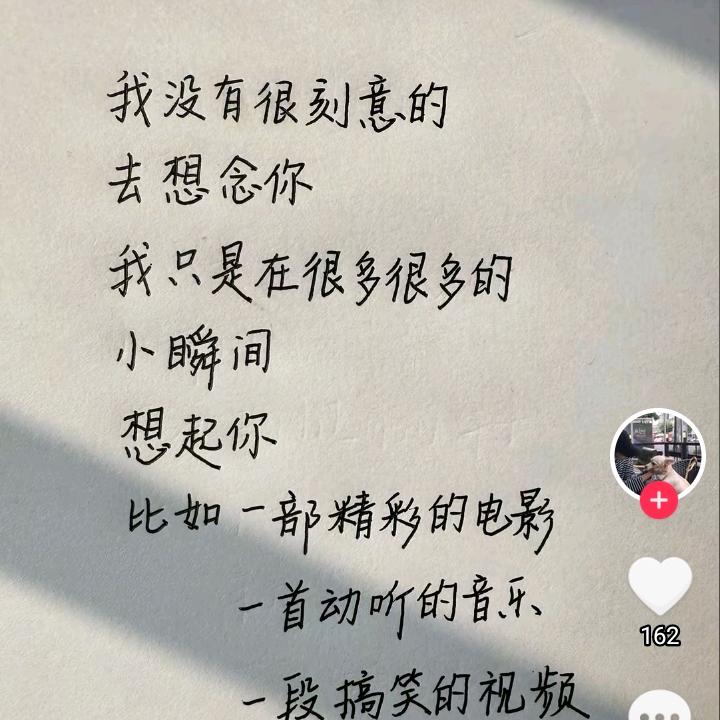 我没有很刻意的
去想念你
我只是在很多很多的
小瞬间
想起你
比如一部精彩的电影
一首动听的音乐
一段搞笑的视频
162